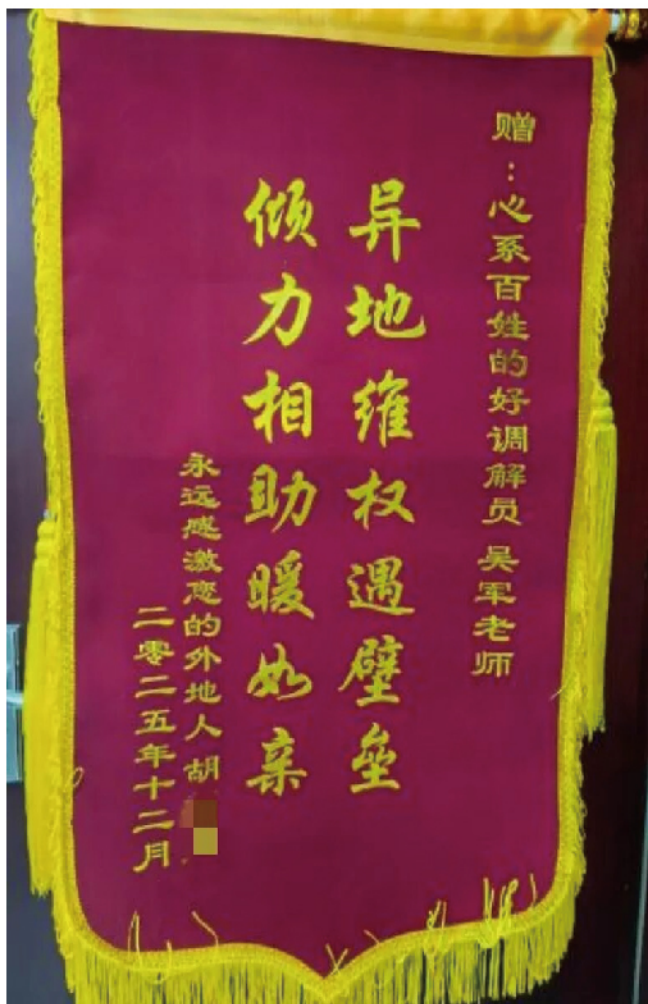 赠：心系百姓的好调解员 吴军老师
异地维权遇壁垒
倾力相助暖如亲
永远感激您的外地人胡
二零二五年十二月